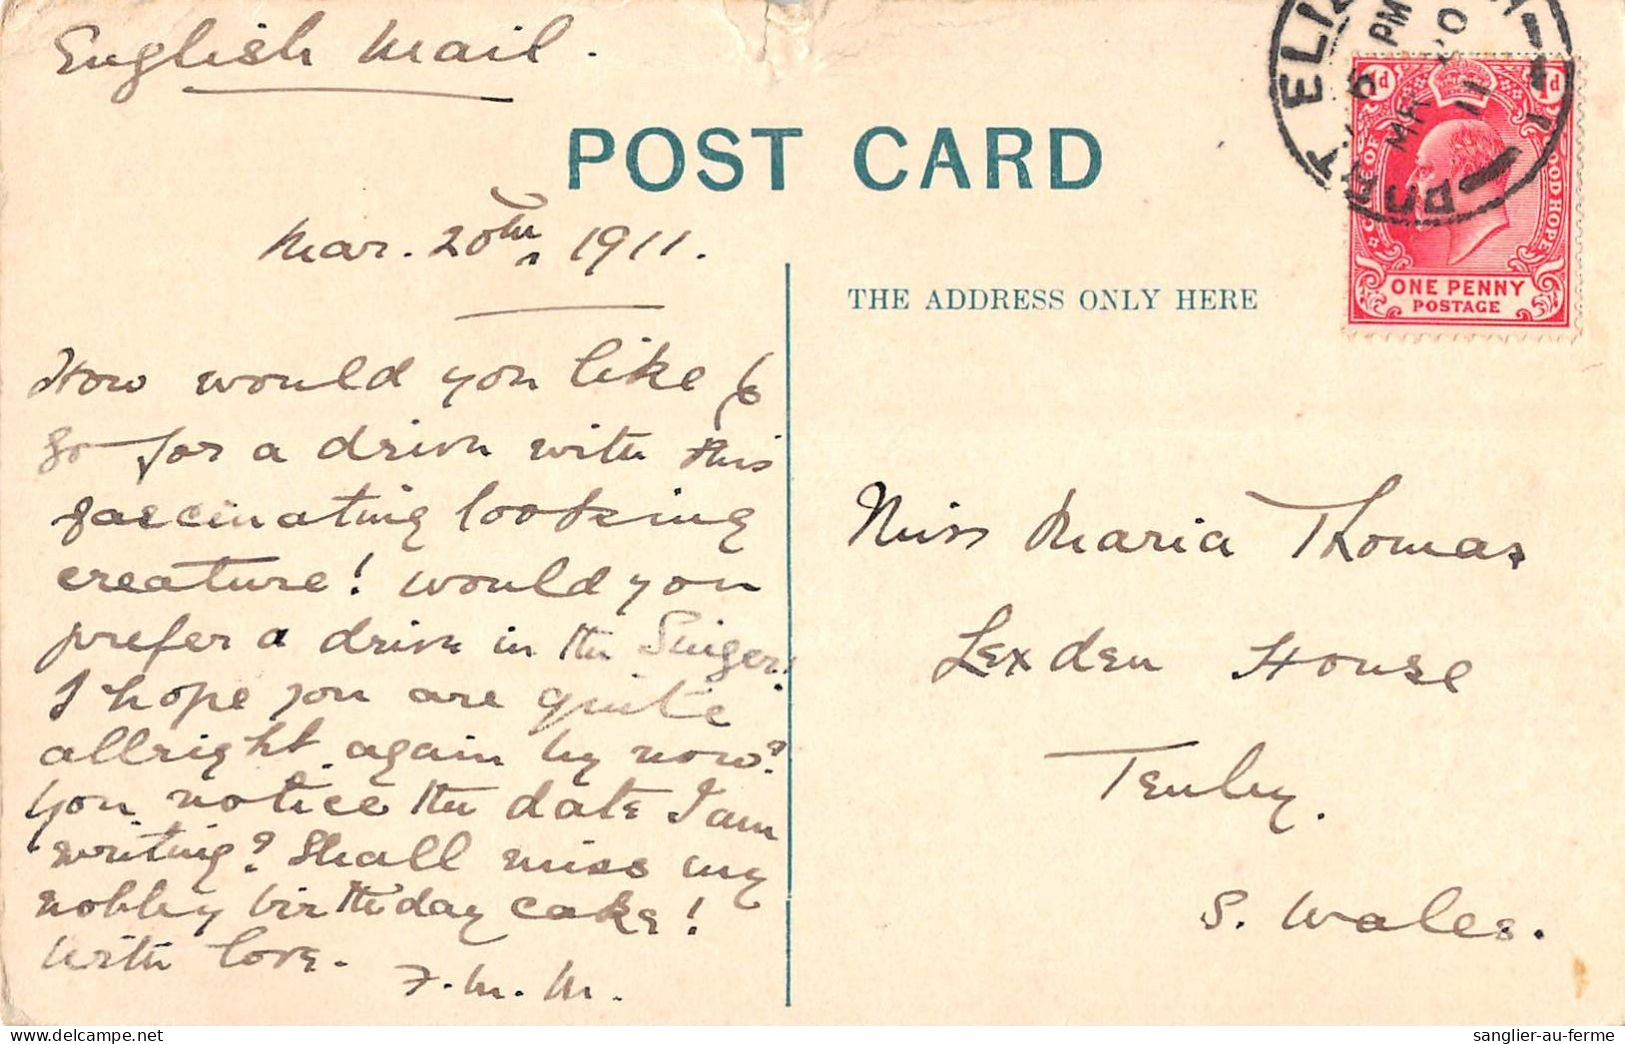 English Mail.
POST CARD
Mar. 20th, 1911.
THE ADDRESS ONLY HERE
How would you like to
go for a drive with this
fascinating looking
creature! would you
prefer a drive in the Singer!
I hope you are quite
allright again by now?
You notice the date I am
writing? Shall miss my
nobby birthday cake!
With love.
F. M. M.
Miss Maria Thomas
Lexden House
Tenby.
S. Wales.
PORT ELIZ
5 PM
MR 20
11
1d 1d
CAPE OF GOOD HOPE
ONE PENNY
POSTAGE
sanglier-au-ferme